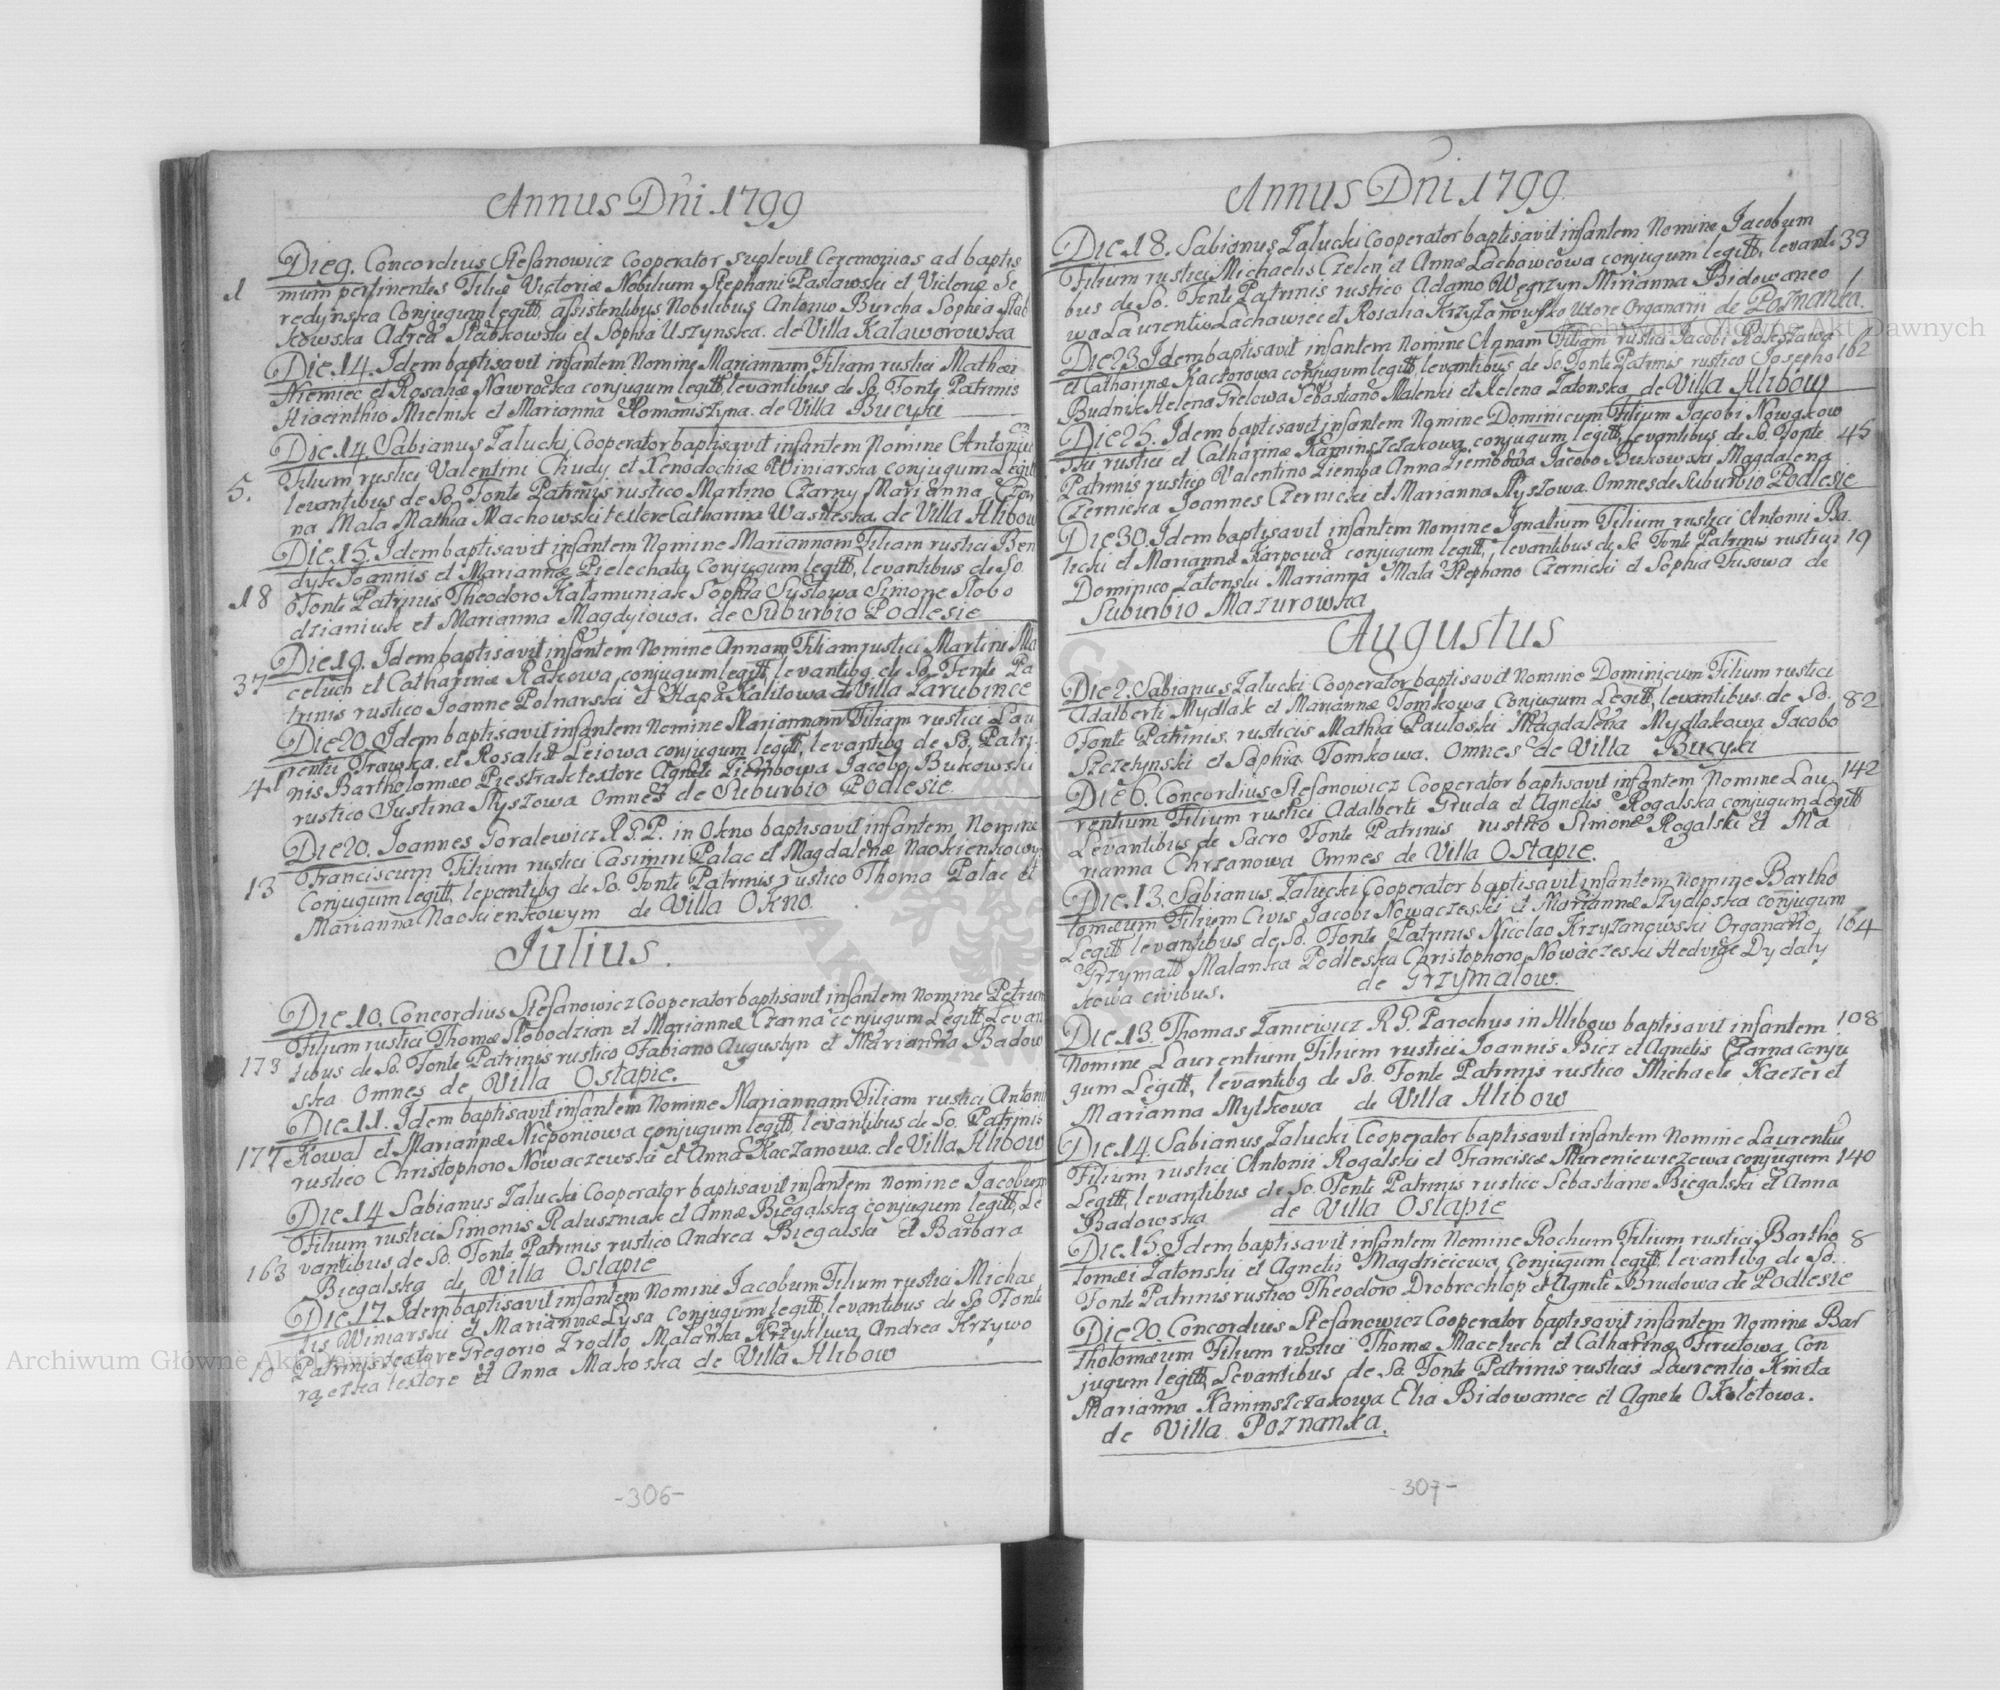 Annus Dni 1799
Die 9. Concordius Stefanowicz Cooperator suplevit Ceremonias ad baptis
1
mum pertinentes Filiæ Victoriæ Nobilium Stephani Pasławski et Victoriæ Se
redynska Conjugum legitt, assistentibus Nobilibus Antonio Burcha Sophia Słab
kowska Adrea Słabkowski et Sophia Uszynska. de Villa Kaławorowska
Die 14. Idem baptisavit infantem Nomine Mariannam Filiam rustici Mathæi
Niemiec et Rosaliæ Nawrocka conjugum legitt, levantibus de So. Fonte Patrinis
Hiacinthio Mielnik et Marianna Romaniszyna. de Villa Bucyki
Die 14. Sabianus Załucki Cooperator baptisavit infantem Nomine Antoniu
Filium rustici Valentini Chudy et Xenodochiæ Winiarska conjugum Legitt
5.
levantibus de So. Fonte Patrinis rustico Martino Czarny Marianna
na Mała Mathia Machowski textore Catharina Wasileska. de Villa Hlibow
Die 15. Idem baptisavit infantem Nomine Mariannam Filiam rustici Ben
dyk Joannis et Mariannæ Pielechaty Conjugum legitt, levantibus de So.
18
Fonte Patrinis Theodoro Kałamuniak Sophia Sysłowa Simone Słobo
dzianiuk et Marianna Magdyiowa. de Suburbio Podlesie
Die 19. Idem baptisavit infantem Nomine Annam Filiam rustici Martini Ma
37
celuch et Catharinæ Rakowa conjugum legitt, levantibg de So. Fonte Pa
trinis rustico Joanne Polnarski et Hapa Kalitowa de Villa Zarubince
Die 20. Idem baptisavit infantem Nomine Mariannam Filiam rustici Lau
rentii Trowska. et Rosaliæ Leiowa conjugum legitt, levantibg de So. Patri
41
nis Bartholomæo Piestrak textore Agnete Ziembowa Jacobo Bukowski
rustico Justina Łyszowa Omnes de Suburbio Podlesie.
Die 20. Joannes Goralewicz R.G.P. in Okno baptisavit infantem Nomine
Franciscum Filium rustici Casimiri Palac et Magdalenæ Naokienkowy
13
Conjugum legitt, levantibg de So. Fonte Patrinis rustico Thoma Palac et
Marianna Naokienkowym de Villa Okno.
Julius.
Die 10. Concordius Stefanowicz Cooperator baptisavit infantem Nomine Petrum
Filium rustici Thomæ Słobodzian et Mariannæ Czarna conjugum Legitt, Levan
173
tibus de So. Fonte Patrinis rustico Fabiano Augustyn et Marianna Badow
ska Omnes de Villa Ostapie.
Die 11. Idem baptisavit infantem Nomine Mariannam Filiam rustici Antoni
177
Kowal et Mariannæ Nieponiowa conjugum legitt, levantibus de So. Patrinis
rustico Christophoro Nowaczewski et Anna Kaczanowa. de Villa Hlibow
Die 14 Sabianus Załucki Cooperator baptisavit infantem Nomine Jacobum
Filium rustici Simonis Raluszniak et Annæ Biegalska conjugum legitt, Le
163
vantibus de So. Fonte Patrinis rustico Andrea Biegalski et Barbara
Biegalska de Villa Ostapie
Die 17. Idem baptisavit infantem Nomine Jacobum Filium rustici Michae
lis Winiarski et Mariannæ Lysa conjugum legitt, levantibus de So Fonte
10
Patrinis textore Gregorio Zrodło Malanka Krzykliwa Andrea Krzywo
rączka textore et Anna Makoska de Villa Hlibow
-306-
Annus Dni 1799.
Die 18. Sabianus Załucki Cooperator baptisavit infantem Nomine Jacobum
Filium rustici Michaelis Czelen et Annæ Lachawcowa conjugum legitt, levanti 33
bus de So. Fonte Patrinis rustico Adamo Węgrzyn Mirianna Bidowanco 1
wa Laurentio Lachawiec et Rosalia Krzyżanowsko Uxore Organarii de Poznanka.
Die 23. Idem baptisavit infantem Nomine Annam Filiam rustici Jacobi
et Catharinæ Kaczorowa conjugum legitt, levantibus de So. Fonte Patrinis rustico Josepho 162
Budnik Helena Grelowa Sebastiano Malenki et Xelena Zatonska de Villa Hlibow
Die 25. Idem baptisavit infantem Nomine Dominicum Filium Jacobi Nowakow
ski rustici et Catharinæ Kaminszczakowa conjugum legitt, levantibus de So. Fonte 45
Patrinis rustico Valentino Ziemba Anna Ziembowa Jacobo Bukowski Magdalena
Czernicka Joannes Czernicki et Marianna Łyszowa. Omnes de Suburbio Podlesie
Die 30. Idem baptisavit infantem Nomine Ignatium Filium rustici Antonii Ba
licki et Mariannæ Karpowa conjugum legitt, levantibus de So Fonte Patrinis rustici 19
Dominico Zatonski Marianna Mała Stephano Czernicki et Sophia Tusowa de
Suburbio Mazurowska
Augustus
Die 2. Sabianus Załucki Cooperator baptisavit Nomine Dominicum Filium rustici
Adalberti Mydlak et Mariannæ Tomkowa Conjugum Legitt, levantibus de So. 82
Fonte Patrinis rusticis Mathia Pauloski Magdalena Mydlakowa Jacobo
Szczezynski et Sophia Tomkowa. Omnes de Villa Bucyki
Die 6. Concordius Stefanowicz Cooperator baptisavit infantem Nomine Lau 142
rentium Filium rustici Adalberti Gruda et Agnetis Rogalska conjugum Legitt
Levantibus de Sacro Fonte Patrinis rustico Simone Rogalski et Ma
rianna Chrzanowa Omnes de Villa Ostapie.
Die 13. Sabianus Załucki Cooperator baptisavit infantem Nomine Bartho
lomæum Filium Civis Jacobi Nowaczeski et Mariannæ Szydłoska conjugum
Legitt levantibus de So. Fonte Patrinis Nicolao Krzyżanowski Organario 164
Grzymałł Malanka Podleska Christophoro Nowaczeski Hedvige Dydaly
kowa civibus. de Grzymałow.
Die 13. Thomas Zaniewicz R.P. Parochus in Hlibow baptisavit infantem 108
Nomine Laurentium Filium rustici Joannis Bicz et Agnetis Czarna conju
gum Legitt, levantibg de So. Fonte Patrinis rustico Michaele Kaczer et
Marianna Mytkowa de Villa Hlibow
Die 14. Sabianus Załucki Cooperator baptisavit infantem Nomine Laurentiu
Filium rustici Antonii Rogalski et Franciscæ Mureniewiczewa conjugum 140
Legitt, levantibus de So. Fonte Patrinis rustico Sebastiano Biegalski et Anna
Badowska de Villa Ostapie
Die 15. Idem baptisavit infantem Nomine Rochum Filium rustici Bartho 8
lomæi Zatonski et Agnetis Magdziciowa conjugum legitt, levantibg de So.
Fonte Patrinis rustico Theodoro Drobrochlop et Agnete Brudowa de Podlesie
Die 20. Concordius Stefanowicz Cooperator baptisavit infantem Nomine Bar
tholomæum Filium rustici Thomæ Maceluch et Catharinæ Firutowa Con
jugum legitt, Levantibus de So. Fonte Patrinis rusticis Laurentio Kmeta
Marianna Kaminszczakowa Elia Bidowaniec et Agnete Okoletowa.
de Villa Poznanka.
-307-
Archiwum Główne Akt Dawnych
Archiwum Główne Akt Dawnych